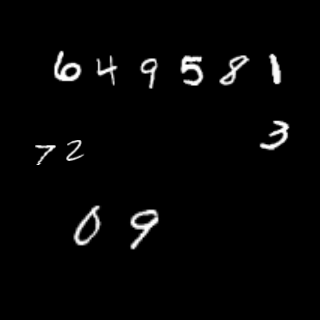 649581
3
72
09